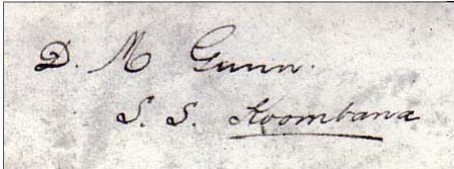 D. M Gunn.
S. S. Koombana